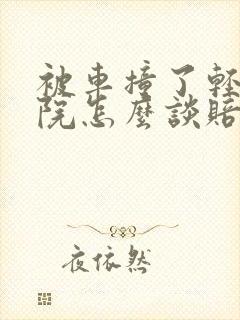 被車撞了輕
院怎麼談賠
夜依然